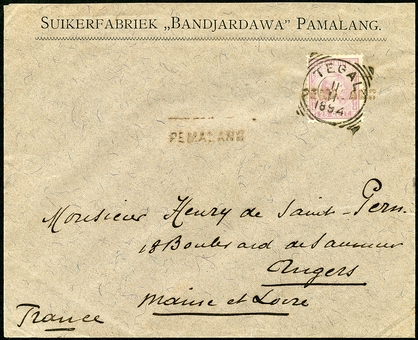 SUIKERFABRIEK „BANDJARDAWA” PAMALANG.
TEGAL
11
11
1894
PEMALANG
Monsieur Henry de Saint-Pern.
18 Boulevard de Saumur
Angers
Maine et Loire
France